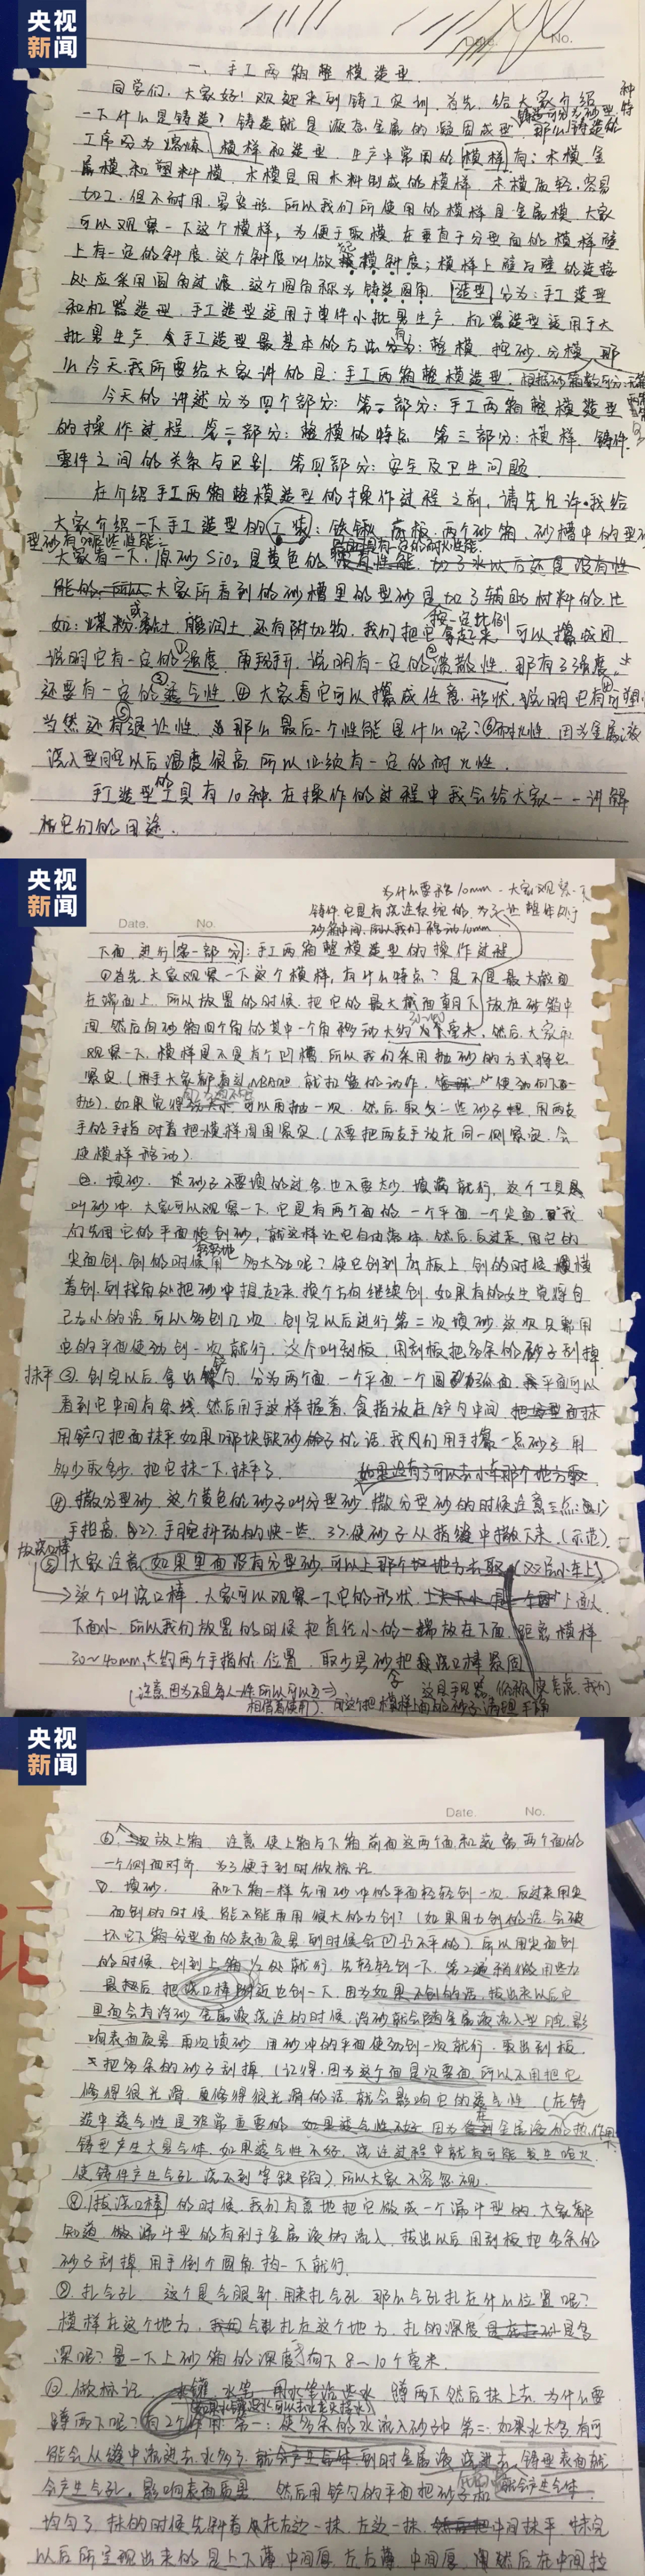 央视
新闻
Date. No.
一、手工两箱整模造型
同学们，大家好！欢迎来到铸工实训，首先，给大家介绍
一下什么是铸造？铸造就是液态金属的凝固成型，那么铸造的
工序分为熔炼、模样和造型，生产中常用的模样有：木模、金
属模和塑料模，木模是用木料制成的模样，木模质轻，容易
加工，但不耐用，易变形，所以我们所使用的模样是金属模，大家
可以观察一下这个模样，为便于取模，在垂直于分型面的模样壁
上有一定的斜度，这个斜度叫做起模斜度；模样上壁与壁的连接
处应采用圆角过渡，这个圆角称为铸造圆角，造型分为：手工造型
和机器造型，手工造型适用于单件小批量生产，机器造型适用于大
批量生产，手工造型最基本的方法有：整模、挖砂、分模，那
么今天我所要给大家讲的是：手工两箱整模造型。
今天的讲述分为四个部分：第一部分：手工两箱整模造型
的操作过程，第二部分：整模的特点，第三部分：模样、铸件、
零件之间的关系与区别，第四部分：安全及卫生问题
在介绍手工两箱整模造型的操作过程之前，请先允许我给
大家介绍一下手工造型的工装：铁锹、底板、两个砂箱，砂槽中的型砂
型砂有哪些性能：
大家看一下，原砂SiO₂是黄色的
大家所看到的砂槽里的型砂是加了辅助材料的，比
如：煤粉、黏土或膨润土，还有附加物，我们把它拿起来，可以攥成团，
按一定比例
说明它有一定的①强度，用手，说明有一定的溃散性，那有了强度，
还要有一定的透气性，大家看它可以攥成任意形状，说明它有可塑
当然还有退让性，那么最后一个性能是什么呢？⑥耐火性，因为金属液
浇入型腔以后温度很高，所以必须有一定的耐火性。
手工造型的工具有10种，在操作的过程中我会给大家一一讲解
和它们的用途。
央视
新闻
为什么要移10mm，大家观察一下
铸件它是有浇注系统的，为了让整体处于
砂箱中间，所以我们移动10mm
Date. No.
下面，进行第一部分：手工两箱整模造型的操作过程
①首先大家观察一下这个模样，有什么特点？是不是最大截面
在端面上，所以放置的时候，把它的最大截面朝下放在砂箱中
间，然后向砂箱四个角的其中一个角移动大约，然后，大家再
观察一下，模样是不是有个凹槽，所以我们采用抛砂的方式将它
紧实，（大家都看过NBA吧，就扣篮的动作，使劲向下
抛），如果觉得可以再抛一次，然后，取多一些砂子，用两支
手的手指对着把模样周围紧实，（不要把两支手放在同一侧紧实，会
使模样移动）
②、填砂，砂子不要填的过多，也不要太少，填满就行，这个工具
叫砂冲，大家可以观察一下，它是有两个面的，一个平面，一个尖面，我
们先用它的平面，就这样让它自由落体，然后，反过来，用它的
尖面刨，刨的时候用多大劲呢？使它刨到底板上，刨的时候横
着刨，到拐角处把砂冲提起来，换个方向继续刨，如果有的女生觉得自
己力小的话，可以多刨几次，刨完以后进行第二次填砂，这次只需用
它的平面使劲刨一次就行，这个叫刮板，用刮板把多余的砂子刮掉
抹平③、刨完以后，拿出铲勺，分为两个面，一个平面，一个圆弧面，平面可以
看到它中间有条线，然后用手这样握着，食指放在铲勺中间
用铲勺把面抹平，如果哪块缺砂子的话，我们用手攥一点砂子，用
多少取多少，把它抹一下，抹平了，
④、撒分型砂，这个黄色的砂子叫分型砂，撒分型砂的时候注意三点：1）
手抬高，2）手腕抖动的快一些，3）使砂子从指缝中撒下来，（示范）
放浇口棒
⑤大家注意，如果里面没有分型砂，可以上那个地方去取（双层小车上）
这个叫浇口棒，大家可以观察一下它的形状，上面大
下面小，所以我们放置的时候把直径小的一端放在下面，距离模样
30～40mm，大约两个手指的位置，取少量砂把浇口棒紧固
央视
新闻
Date. No.
⑥、放上箱，注意使上箱与下箱前面这两个面和两个面的
一个侧面对齐，为了便于到时做标记
⑦、填砂，和下箱一样先用砂冲的平面轻轻刨一次，反过来用尖
面刨的时候，能不能再用很大的力刨？（如果用力刨的话，会破
坏它下箱分型面的表面质量，到时候会凹凸不平的）所以用尖面刨
的时候，刨到上箱1/2处就行，先轻轻刨一下，第2遍稍微用些力
最后，把浇口棒附近也刨一下，因为如果不刨的话，拔出来以后它
里面会有浮砂，金属液浇注的时候，浮砂就会随金属液流入型腔，影
响表面质量，再次填砂，用砂冲的平面使劲刨一次就行，取出刮板，
把多余的砂子刮掉，（记得，因为这个面是次要面，所以不用把它
修得很光滑，修得很光滑的话，就会影响它的透气性，（在铸
造中透气性是非常重要的，因为在金属液的热作用
铸型产生大量气体，如果透气性不好，浇注过程中就有可能发生呛火，
使铸件产生气孔、浇不到等缺陷），所以大家不容忽视。
⑧、拔浇口棒的时候，我们有意地把它做成一个漏斗型的，大家都
知道，做漏斗型的有利于金属液的流入，拔出以后用刮板把多余的
砂子刮掉，用手倒个圆角，拍一下就行，
⑨、扎气孔，这个是气眼针，用来扎气孔，那么气孔扎在什么位置呢？
模样在这个地方，扎在这个地方，扎的深度是多
深呢？量一下上砂箱的深度，向下8～10个毫米，
⑩、做标记，水罐、水笔，用水笔沾些水，蹲两下然后抹上去，为什么要
蹲两下呢？有2个作用：第一：使多余的水流入砂子中，第二：如果水太多，有可
能会从缝中流进去，水多了，到时金属液浇进去，铸型表面就
会产生气孔，影响表面质量，然后用铲勺的平面把砂子
均匀了，抹的时候先斜着在左边一抹，右边一抹，中间抹平，抹完
以后所呈现出来的是上下薄，中间厚，左右薄，中间厚，然后在中间